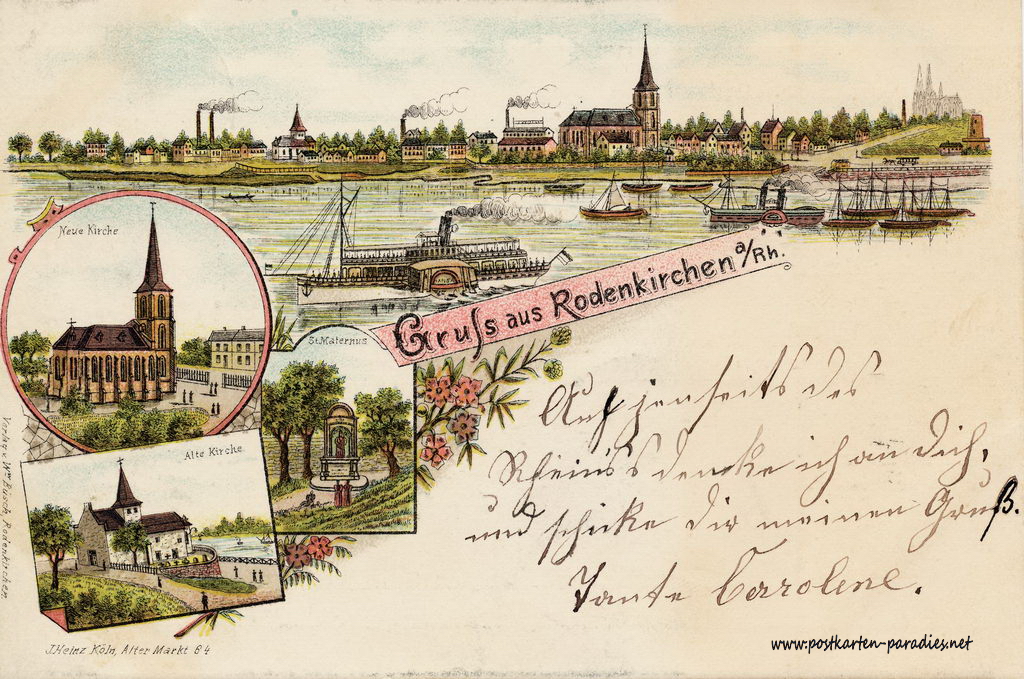 Neue Kirche
St. Maternus
Gruss aus Rodenkirchen a/Rh.
Alte Kirche
Auf jenseits des
Rhein's denke ich an Dich,
und schicke Dir meinen Gruß.
Tante Caroline.
Verlag v. Wm Büsch, Rodenkirchen.
J. Heinz Köln, Alter Markt 64
www.postkarten-paradies.net